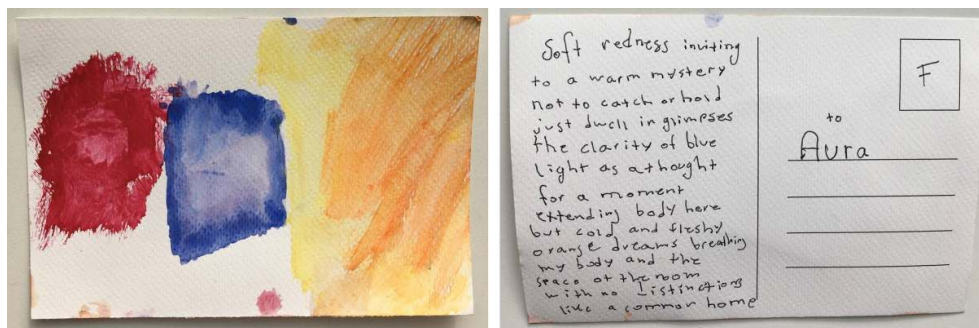 Soft redness inviting
to a warm mystery
not to catch or hold
just dwell in glimpses
the clarity of blue
light as a thought
for a moment
extending body here
but cold and fleshy
orange dreams breathing
my body and the
space of the room
with no distinctions
like a common home
F
to
Aura